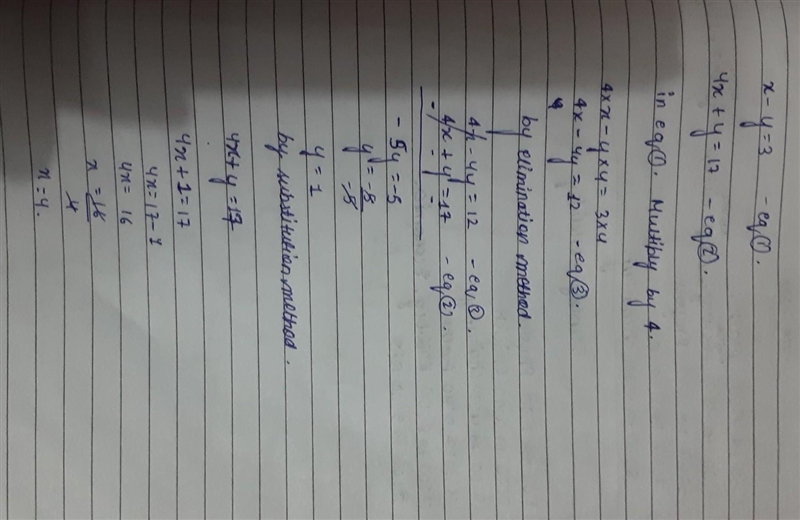 x - y = 3 - eq ①.
4x + y = 17 - eq ②.
in eq ①. Multiply by 4.
4 x x - y x 4 = 3 x 4
4x - 4y = 12 - eq ③.
by elimination method.
4x - 4y = 12 - eq ②
4x + y = 17 - eq ②.
- - -
- 5y = -5
y = -5
-5
y = 1
by substitution method.
4x + y = 17
4x + 1 = 17
4x = 17 - 1
4x = 16
x = 16
4
x = 4.